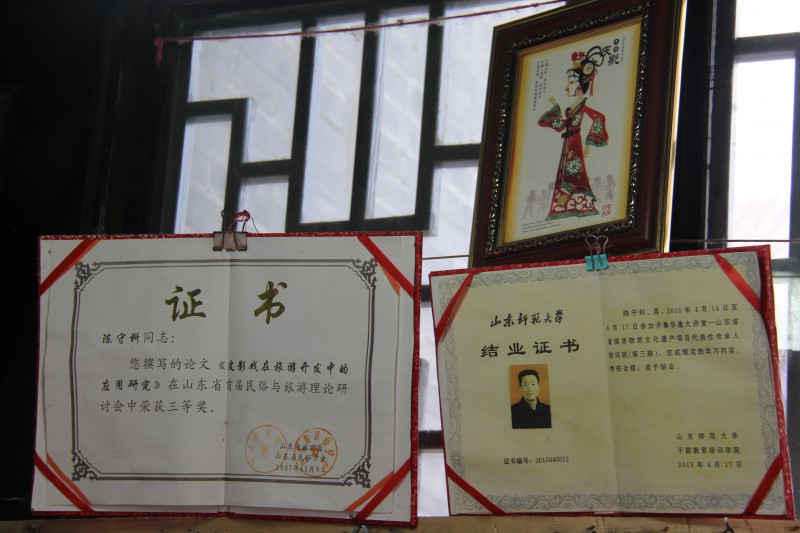 证 书
陈守科同志:
您撰写的论文《皮影戏在旅游开发中的
应用研究》在山东省首届民俗与旅游理论研
讨会中荣获三等奖。
山东省民俗学会
2007年12月9日
皮影
山东师范大学
结业证书
证书编号:2015040312
陈守科,男,2015年4月14日至
4月17日参加齐鲁非遗大讲堂—山东省
省级非物质文化遗产项目代表性传承人
培训班(第三期),完成规定的学习内容,
考核合格,准予结业。
山东师范大学
干部教育培训学院
2015年4月17日